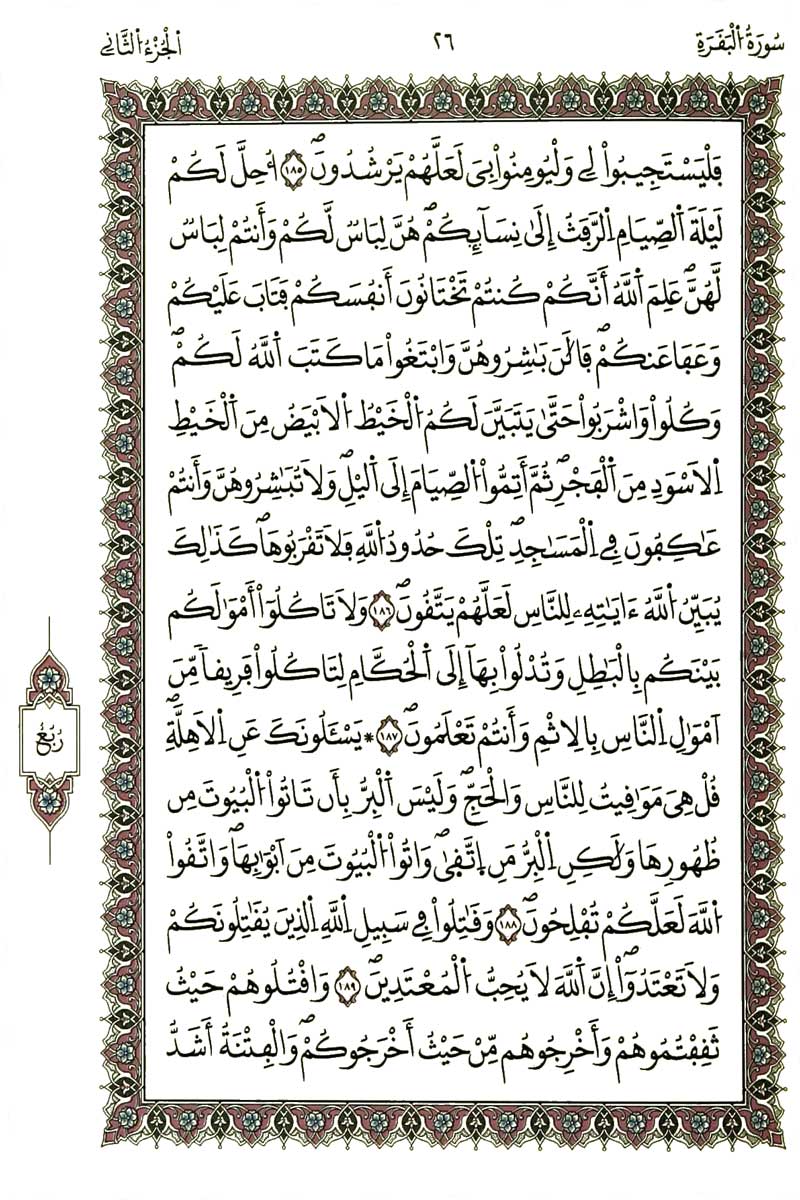 سُورَةُ اَ۬لْبَقَرَةِ
٢٦
اَ۬لْجُزْءُ اُ۬لثَّانِي
فَلْيَسْتَجِيبُواْ لِي وَلْيُومِنُواْ بِيَ لَعَلَّهُمْ يَرْشُدُونَۖ ١٨٥ اُ۟حِلَّ لَكُمْ
لَيْلَةَ اَ۬لصِّيَامِ اِ۬لرَّفَثُ إِلَىٰ نِسَآئِكُمْۖ هُنَّ لِبَاسٞ لَّكُمْ وَأَنتُمْ لِبَاسٞ
لَّهُنَّۖ عَلِمَ اَ۬للَّهُ أَنَّكُمْ كُنتُمْ تَخْتَانُونَ أَنفُسَكُمْ فَتَابَ عَلَيْكُمْ
وَعَفَا عَنكُمْۖ فَالَٰنَ بَٰشِرُوهُنَّ وَابْتَغُواْ مَا كَتَبَ اَ۬للَّهُ لَكُمْۖ
وَكُلُواْ وَاشْرَبُواْ حَتَّىٰ يَتَبَيَّنَ لَكُمُ اُ۬لْخَيْطُ اُ۬لَابْيَضُ مِنَ اَ۬لْخَيْطِ
اِ۬لَاسْوَدِ مِنَ اَ۬لْفَجْرِۖ ثُمَّ أَتِمُّواْ اُ۬لصِّيَامَ إِلَى اَ۬ليْلِۖ وَلَا تُبَٰشِرُوهُنَّ وَأَنتُمْ
عَٰكِفُونَ فِي اِ۬لْمَسَٰجِدِۖ تِلْكَ حُدُودُ اُ۬للَّهِ فَلَا تَقْرَبُوهَاۖ كَذَٰلِكَ
يُبَيِّنُ اُ۬للَّهُ ءَايَٰتِهِۦ لِلنَّاسِ لَعَلَّهُمْ يَتَّقُونَۖ ١٨٦ وَلَا تَاكُلُوٓاْ أَمْوَٰلَكُم
بَيْنَكُم بِالْبَٰطِلِ وَتُدْلُواْ بِهَآ إِلَى اَ۬لْحُكَّامِ لِتَاكُلُواْ فَرِيقاٗ مِّنَ
اَمْوَٰلِ اِ۬لنَّاسِ بِالِاثْمِ وَأَنتُمْ تَعْلَمُونَۖ ١٨٧ * يَسْـَٔلُونَكَ عَنِ اِ۬لَاهِلَّةِۖ
رُبُعُ
قُلْ هِيَ مَوَٰقِيتُ لِلنَّاسِ وَالْحَجِّۖ وَلَيْسَ اَ۬لْبِرُّ بِأَن تَاتُواْ اُ۬لْبُيُوتَ مِن
ظُهُورِهَا وَلَٰكِنِ اِ۬لْبِرُّ مَنِ اِ۪تَّقَىٰۖ وَاتُواْ اُ۬لْبُيُوتَ مِنَ اَبْوَٰبِهَاۖ وَاتَّقُواْ
اُ۬للَّهَ لَعَلَّكُمْ تُفْلِحُونَۖ ١٨٨ وَقَٰتِلُواْ فِي سَبِيلِ اِ۬للَّهِ اِ۬لذِينَ يُقَٰتِلُونَكُمْ
وَلَا تَعْتَدُوٓاْۖ إِنَّ اَ۬للَّهَ لَا يُحِبُّ اُ۬لْمُعْتَدِينَۖ ١٨٩ وَاقْتُلُوهُمْ حَيْثُ
ثَقِفْتُمُوهُمْ وَأَخْرِجُوهُم مِّنْ حَيْثُ أَخْرَجُوكُمْۖ وَالْفِتْنَةُ أَشَدُّ